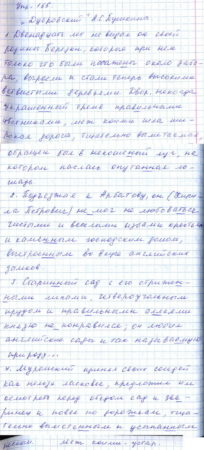 Упр. 156.
„Дубровский" А. С. Пушкина.
1. Двенадцать лет не видал он своей
родины. Берёзки, которые при нём
только что были посажены около забо-
ра, выросли и стали теперь высокими
ветвистыми деревьями. Двор, некогда
украшенный тремя правильными
цветниками, меж коими шла ши-
рокая дорога, тщательно выметаемая,
обращён был в некошеный луг, на
котором паслась опутанная ло-
шадь.
2. Подъезжая к Арбатову, он (Кирила
Петрович) не мог не любоваться
чистыми и весёлыми избами крестьян
и каменным господским домом,
выстроенным во вкусе английских
замков.
3. Старинный сад с его стрижен-
ными липами, четвероугольным
прудом и правильными аллеями
не понравился, он любил
английские сады и так называемую
природу...
4. Муромский принял своих соседей
как нельзя ласковее, предложил им
осмотреть перед обедом сад и зве-
ринец и повёл по дорожкам, тща-
тельно выметенным и усыпанным
песком. меж коими - устар.